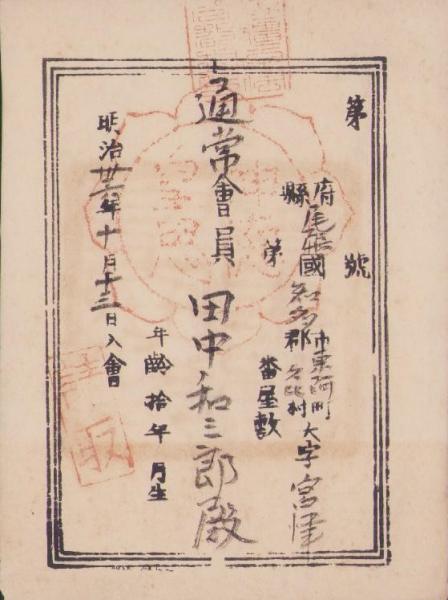 第　號
府縣尾張國知多郡市東阿久比町村大字宮津
第　番屋敷
通常會員　田中和三郎殿
年齡拾年　月生
明治卅六年十月十三日入會